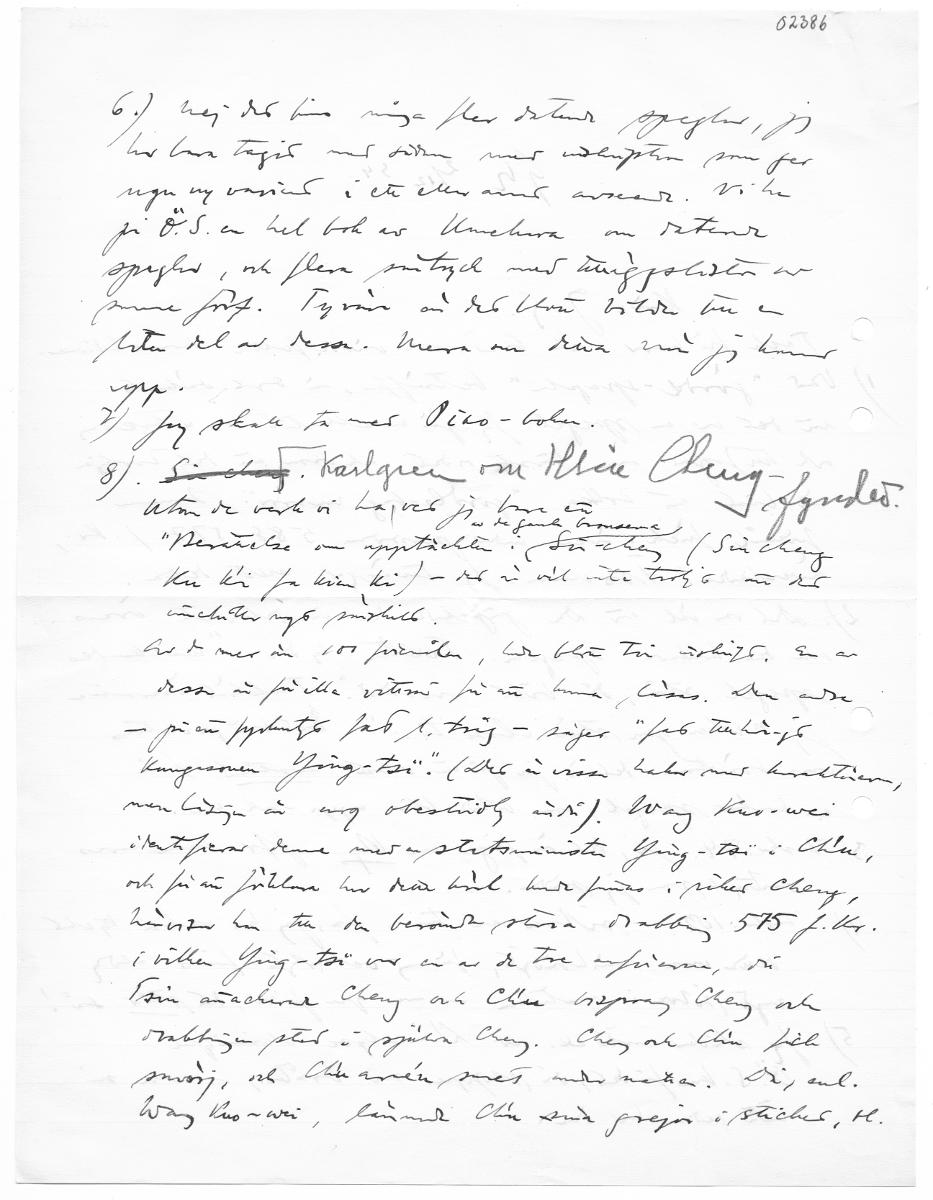 02386
6.) Nej det finns många fler daterade speglar, jag
har bara tagit med sådan med inskription som ger
ngn ny variant i ett eller annat avseende. Vi ha
på Ö.S. en hel bok av Umehara om daterade
speglar, och flera särtryck med tilläggslistor av
samme förf. Tyvärr är det blott bilder till en
liten del av dessa. Mera om detta när jag kommer
upp.
7) Jag skall ta med Piao-boken.
8). Sin cheng. Karlgren om Hsin Cheng-fyndet.
Utom de verk vi ha, vet jag bara en
av de gamla bronserna
"Berättelse om upptäckten i Sin-cheng (Sin cheng
Ku k'i fa kien ki) – det är väl inte troligt att det
innehåller ngt särskilt.
Av de mer än 100 föremålen, ha blott två inskrift. En av
dessa är för illa vittrad för att kunna läsas. Den andra
– på ett fyrkantigt fat l. tråg – säger "fat tillhörigt
kungasonen Ying-tsï". (Det är vissa hakar med karaktärerna,
men läsningen är nog obestridlig ändå). Wang Kuo-wei
identifierar denne med en statsminister Ying-tsï i Ch'u,
och för att förklara hur detta kärl kunde finnas i riket Cheng,
hänvisar han till den berömda stora drabbning 575 f.Kr.
i vilken Ying-tsï var en av de tre anförarna, då
Tsin attackerade Cheng och Ch'u bisprang Cheng och
drabbningen stod i själva Cheng. Cheng och Ch'u fick
smörj, och Ch'u armén smet under natten. Då, enl.
Wang Kuo-wei, lämnade Ch'u sina grejor i sticket, bl.